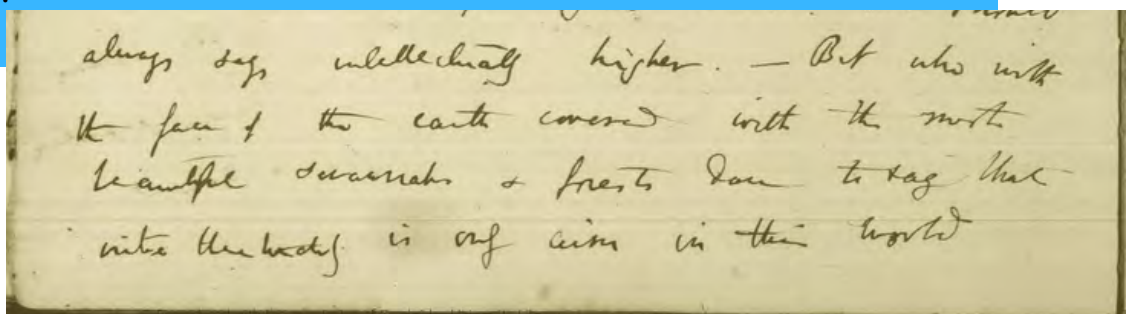 always say, intellectually higher. — But who with
the face of the earth covered with the most
beautiful savannahs & forests dare to say that
intellectuality is only aim in this world